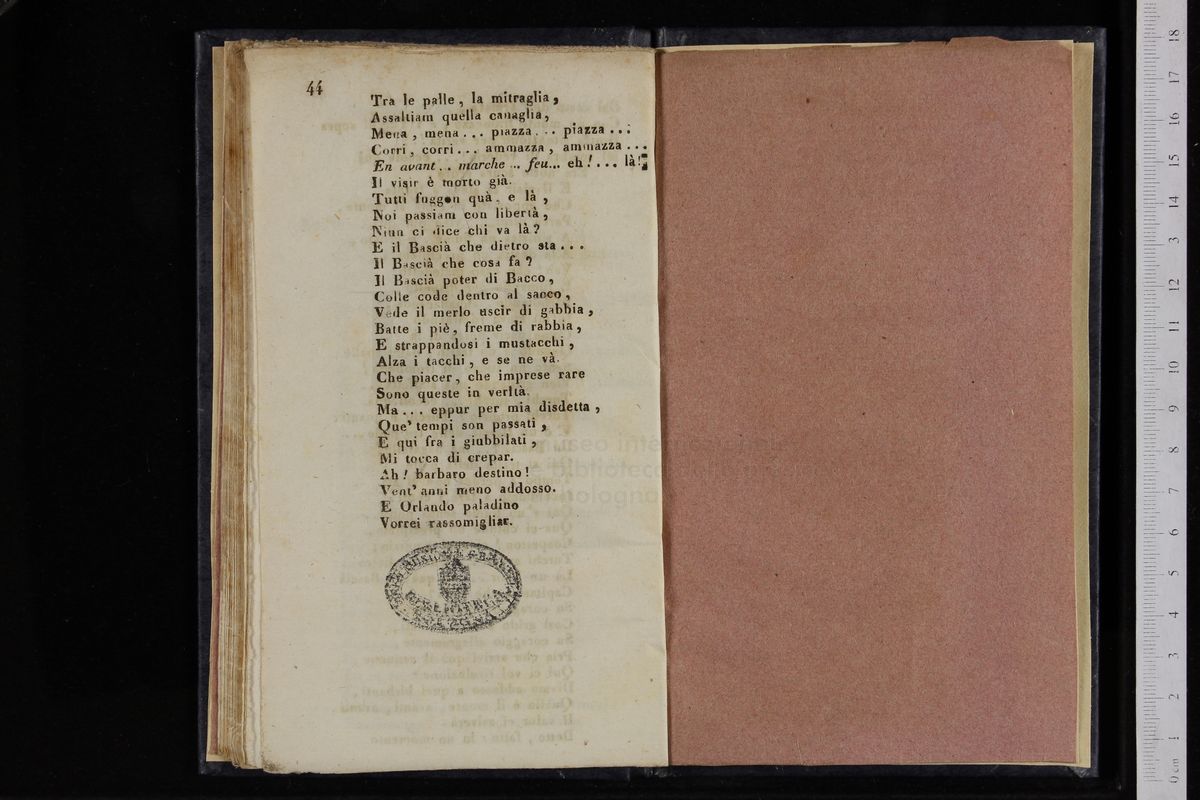 44
Tra le palle, la mitraglia,
Assaltiam quella canaglia,
Mena, mena... piazza... piazza...
Corri, corri... ammazza, ammazza...
En avant.. marche... feu... eh!... là!
Il visir è morto già.
Tutti fuggon quà, e là,
Noi passiam con libertà,
Niun ci dice chi va là?
E il Bascià che dietro sta...
Il Bascià che cosa fa?
Il Bascià poter di Bacco,
Colle code dentro al sacco,
Vede il merlo uscir di gabbia,
Batte i piè, freme di rabbia,
E strappandosi i mustacchi,
Alza i tacchi, e se ne và.
Che piacer, che imprese rare
Sono queste in verità.
Ma... eppur per mia disdetta,
Que' tempi son passati,
E qui fra i giubbilati,
Mi tocca di crepar.
Ah! barbaro destino!
Vent' anni meno addosso.
E Orlando paladino
Vorrei rassomigliar.
museo internazionale
e biblioteca
bologna
0 cm 1 2 3 4 5 6 7 8 9 10 11 12 13 14 15 16 17 18